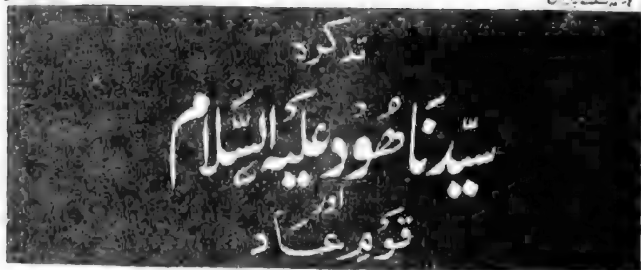 تذکرہ
سَیِّدنَا ھُود عَلَیہِ السَّلَام
اور
قَومِ عَاد